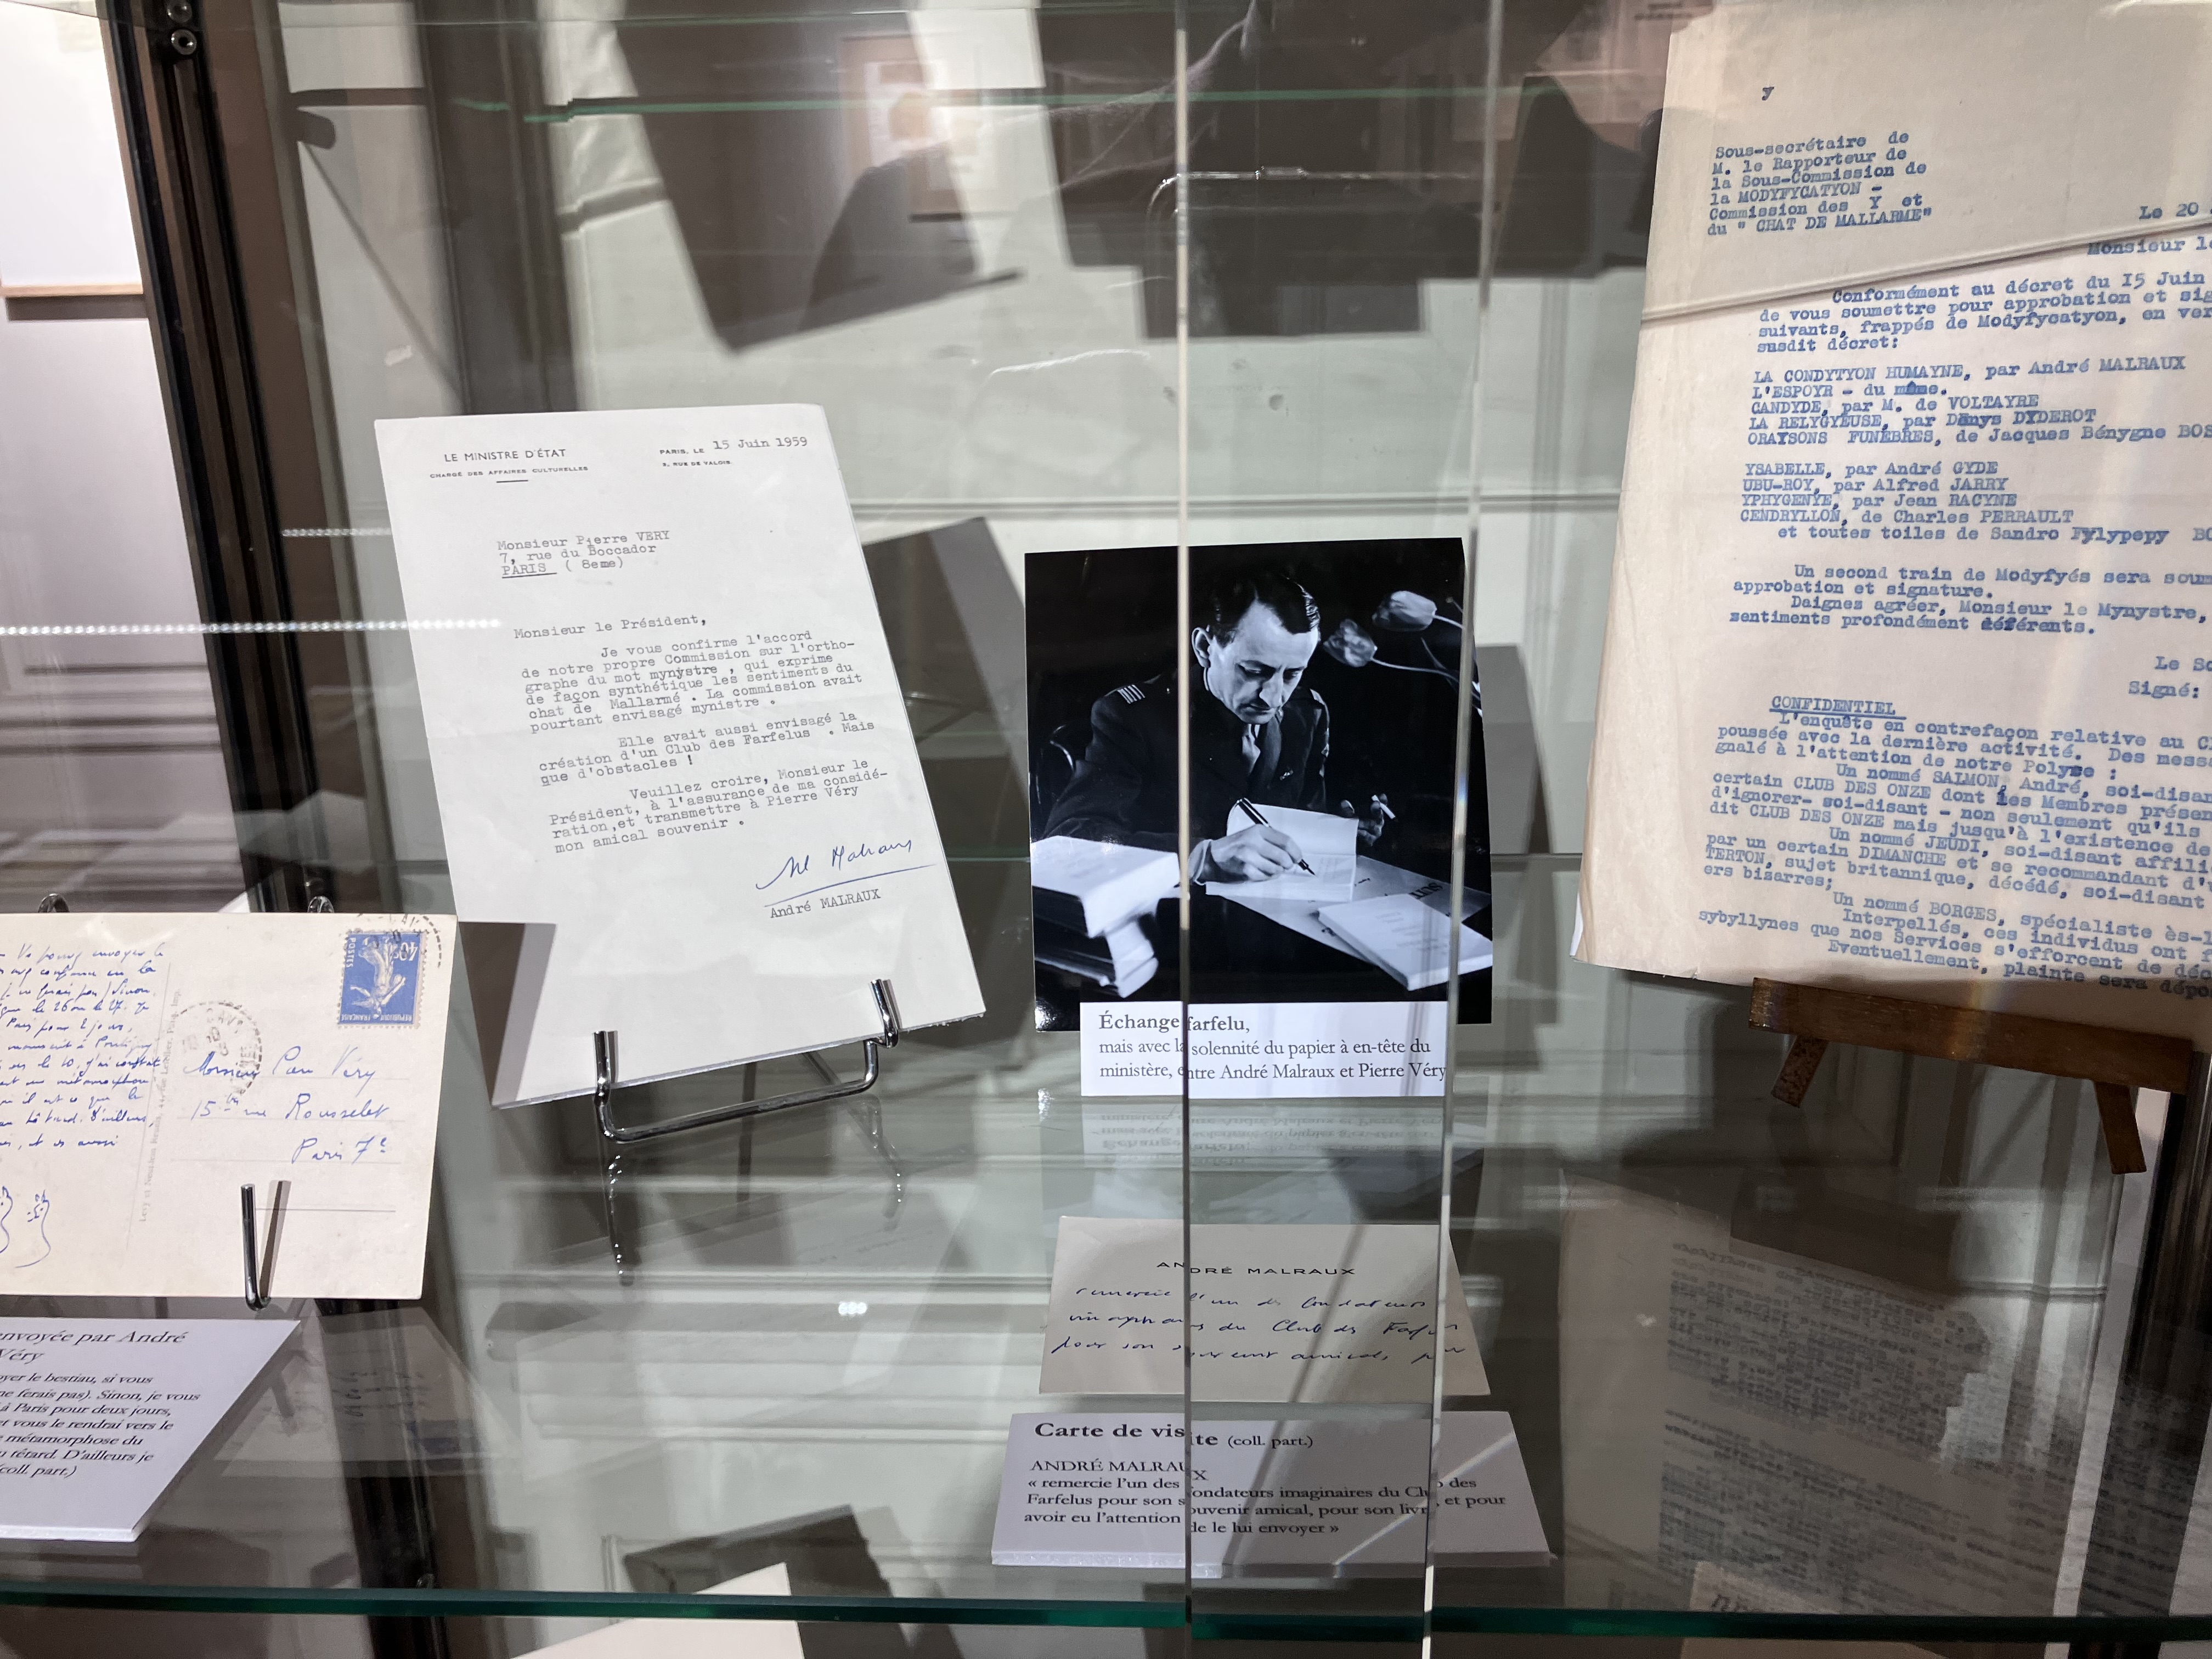 LE MINISTRE D'ÉTAT
CHARGÉ DES AFFAIRES CULTURELLES
PARIS, LE 15 Juin 1959
3, RUE DE VALOIS.
Monsieur Pierre VERY
7, rue du Boccador
PARIS ( 8eme)
Monsieur le Président,
Je vous confirme l'accord
de notre propre Commission sur l'ortho-
graphe du mot mynystre , qui exprime
de façon synthétique les sentiments du
chat de Mallarmé . La commission avait
pourtant envisagé mynistre .
Elle avait aussi envisagé la
création d'un Club des Farfelus . Mais
que d'obstacles !
Veuillez croire, Monsieur le
Président, à l'assurance de ma considé-
ration,et transmettre à Pierre Véry
mon amical souvenir .
André MALRAUX
40c
POSTES
REPUBLIQUE FRANÇAISE
Monsieur Pierre Véry
15 bis rue Rousselet
Paris 7e
envoyée par André
Véry
oyer le bestiau, si vous
ne ferais pas). Sinon, je vous
à Paris pour deux jours,
et vous le rendrai vers le
métamorphose du
têtard. D'ailleurs je
(coll. part.)
Échange farfelu,
mais avec la solennité du papier à en-tête du
ministère, entre André Malraux et Pierre Véry
ANDRÉ MALRAUX
remercie l'un des fondateurs
imaginaires du Club des Farfelus
pour son souvenir amical, pour
Carte de visite (coll. part.)
ANDRÉ MALRAUX
« remercie l'un des fondateurs imaginaires du Club des
Farfelus pour son souvenir amical, pour son livre, et pour
avoir eu l'attention de le lui envoyer »
y
Sous-secrétaire de
M. le Rapporteur de
la Sous-Commission de
la MODYFYCATYON -
Commission des Y et
du " CHAT DE MALLARME"
Le 20
Monsieur le
Conformément au décret du 15 Juin
de vous soumettre pour approbation et sig
suivants, frappés de Modyfycatyon, en ver
susdit décret:
LA CONDYTYON HUMAYNE, par André MALRAUX
L'ESPOYR - du même.
CANDYDE, par M. de VOLTAYRE
LA RELYGYEUSE, par Denys DYDEROT
ORAYSONS FUNEBRES, de Jacques Bénygne BOS
YSABELLE, par André GYDE
UBU-ROY, par Alfred JARRY
YPHYGENYE, par Jean RACYNE
CENDRYLLON, de Charles PERRAULT
et toutes toiles de Sandro Fylypepy BO
Un second train de Modyfyés sera soum
approbation et signature.
Daignes agréer, Monsieur le Mynystre,
sentiments profondément déférents.
Le So
Signé:
CONFIDENTIEL
L'enquête en contrefaçon relative au C
poussée avec la dernière activité. Des messa
gnalé à l'attention de notre Polyce :
Un nommé SALMON, André, soi-disan
certain CLUB DES ONZE dont les Membres présen
d'ignorer- soi-disant - non seulement qu'ils
dit CLUB DES ONZE mais jusqu'à l'existence de
Un nommé JEUDI, soi-disant affili
par un certain DIMANCHE et se recommandant d'
TERTON, sujet britannique, décédé, soi-disant
ers bizarres;
Un nommé BORGES, spécialiste ès-l
Interpellés, ces individus ont f
sybyllynes que nos Services s'efforcent de déc
Eventuellement, plainte sera dépo